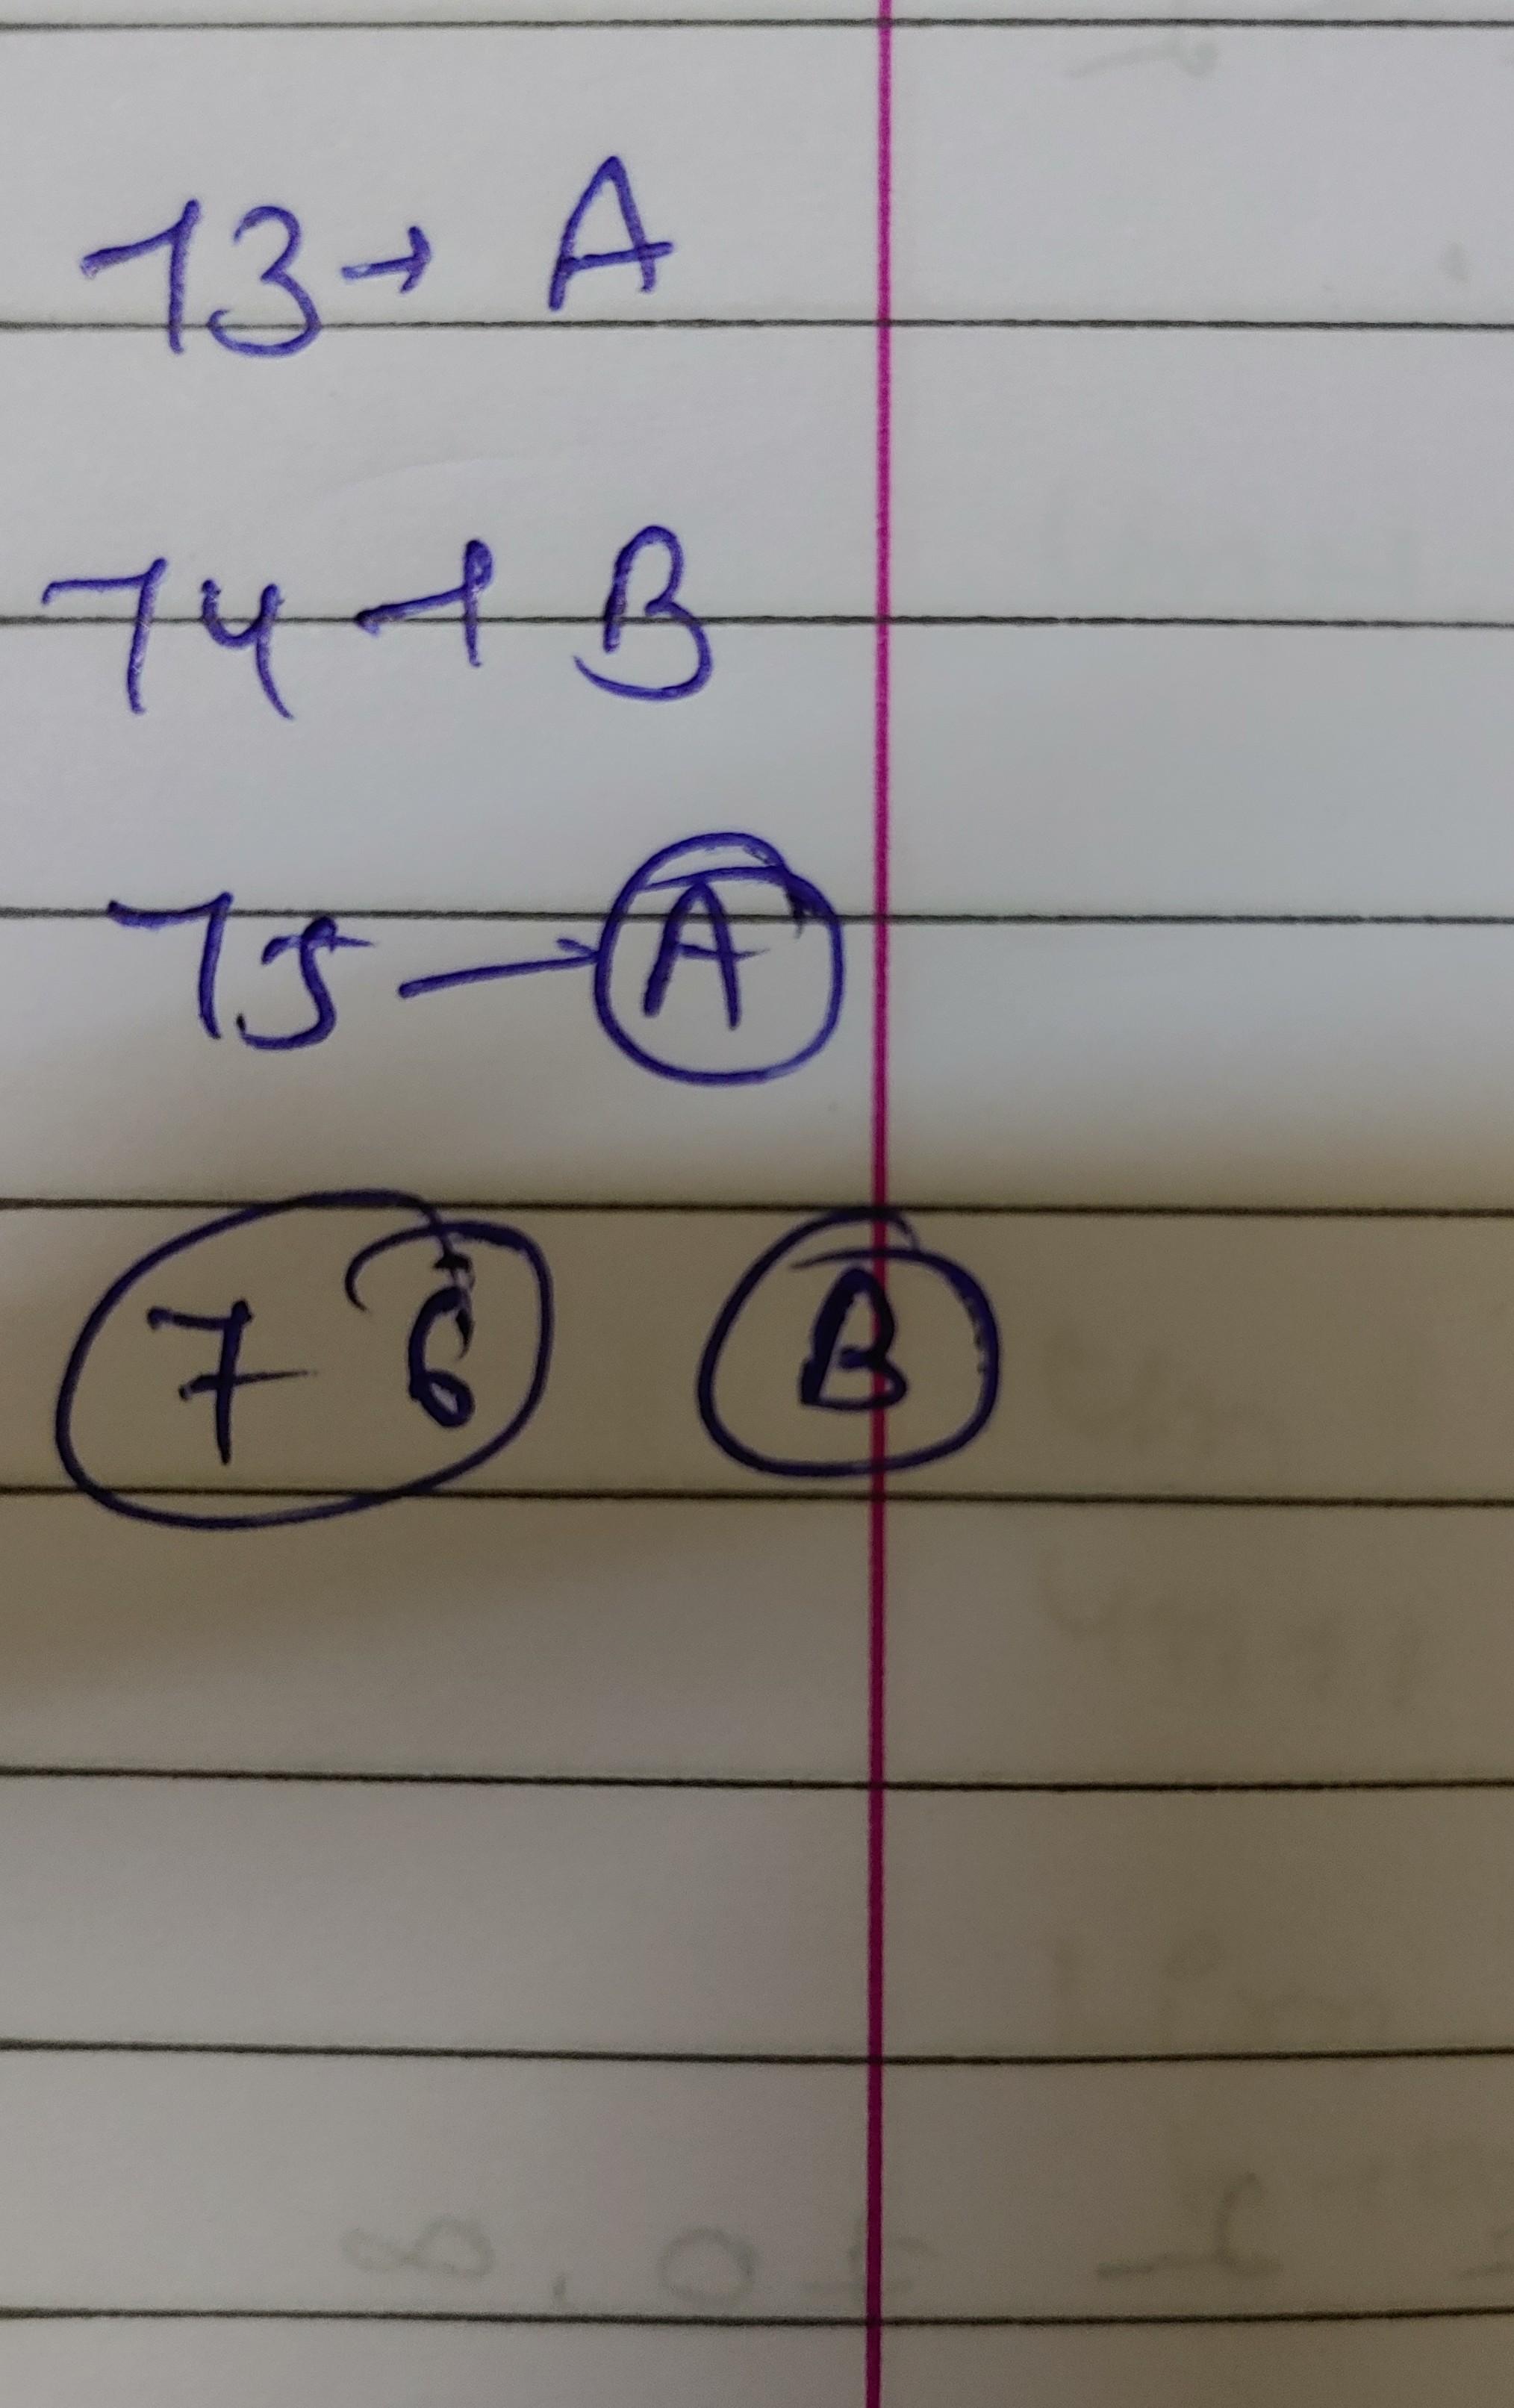 73 → A
74 → B
75 → A
76 B